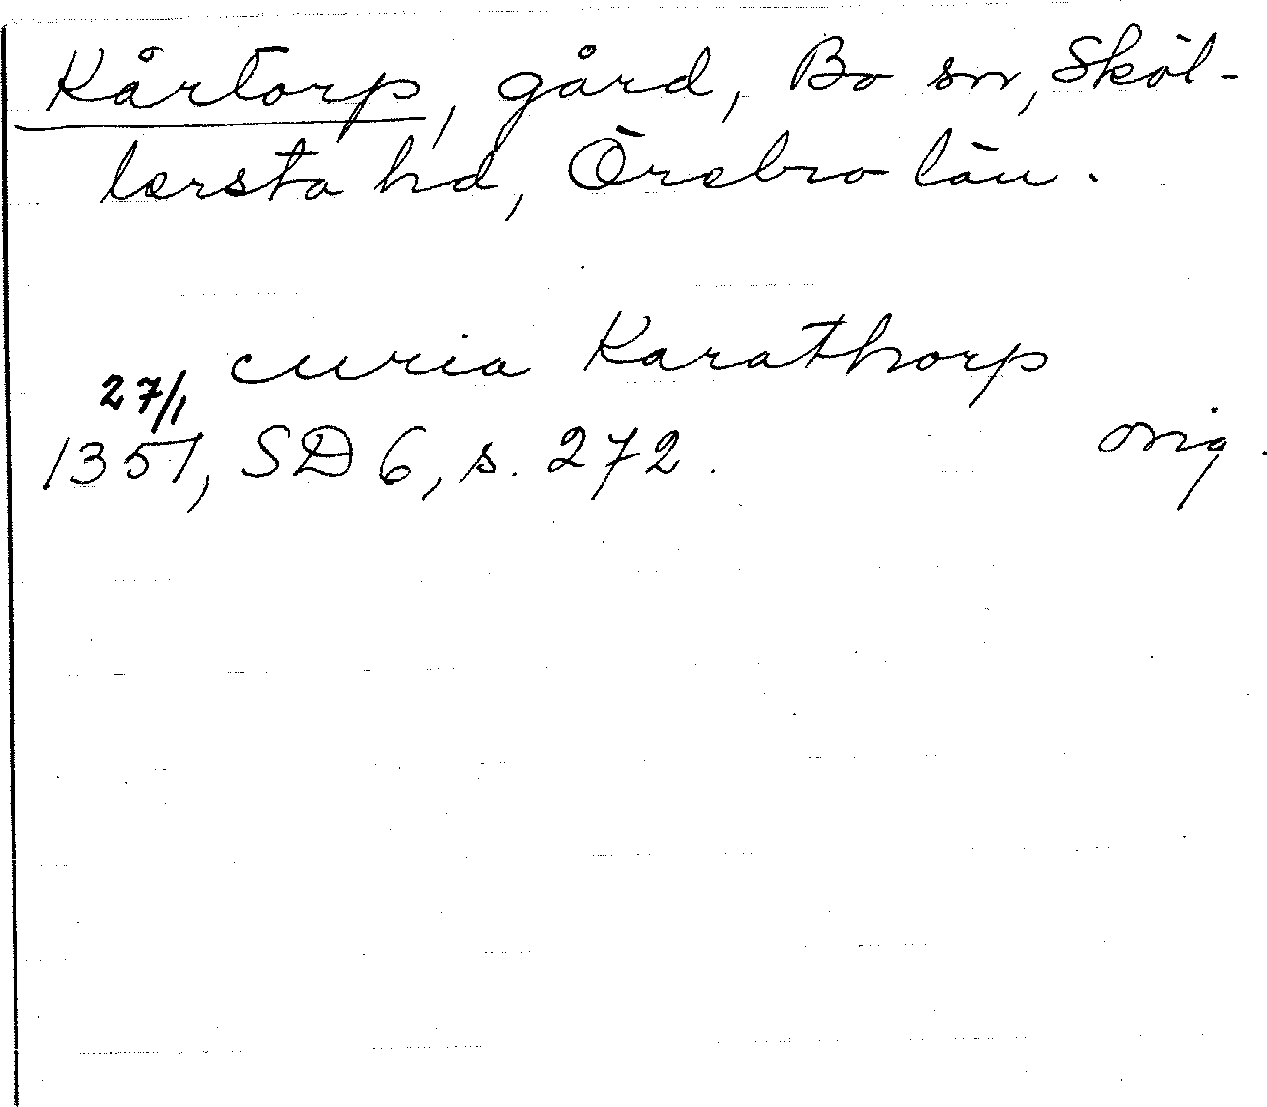 Kårtorp, gård, Bo sn, Sköl-
lersta hd, Örebro län.
curia Karathorp
27/1
1351, SD 6, s. 272. orig.